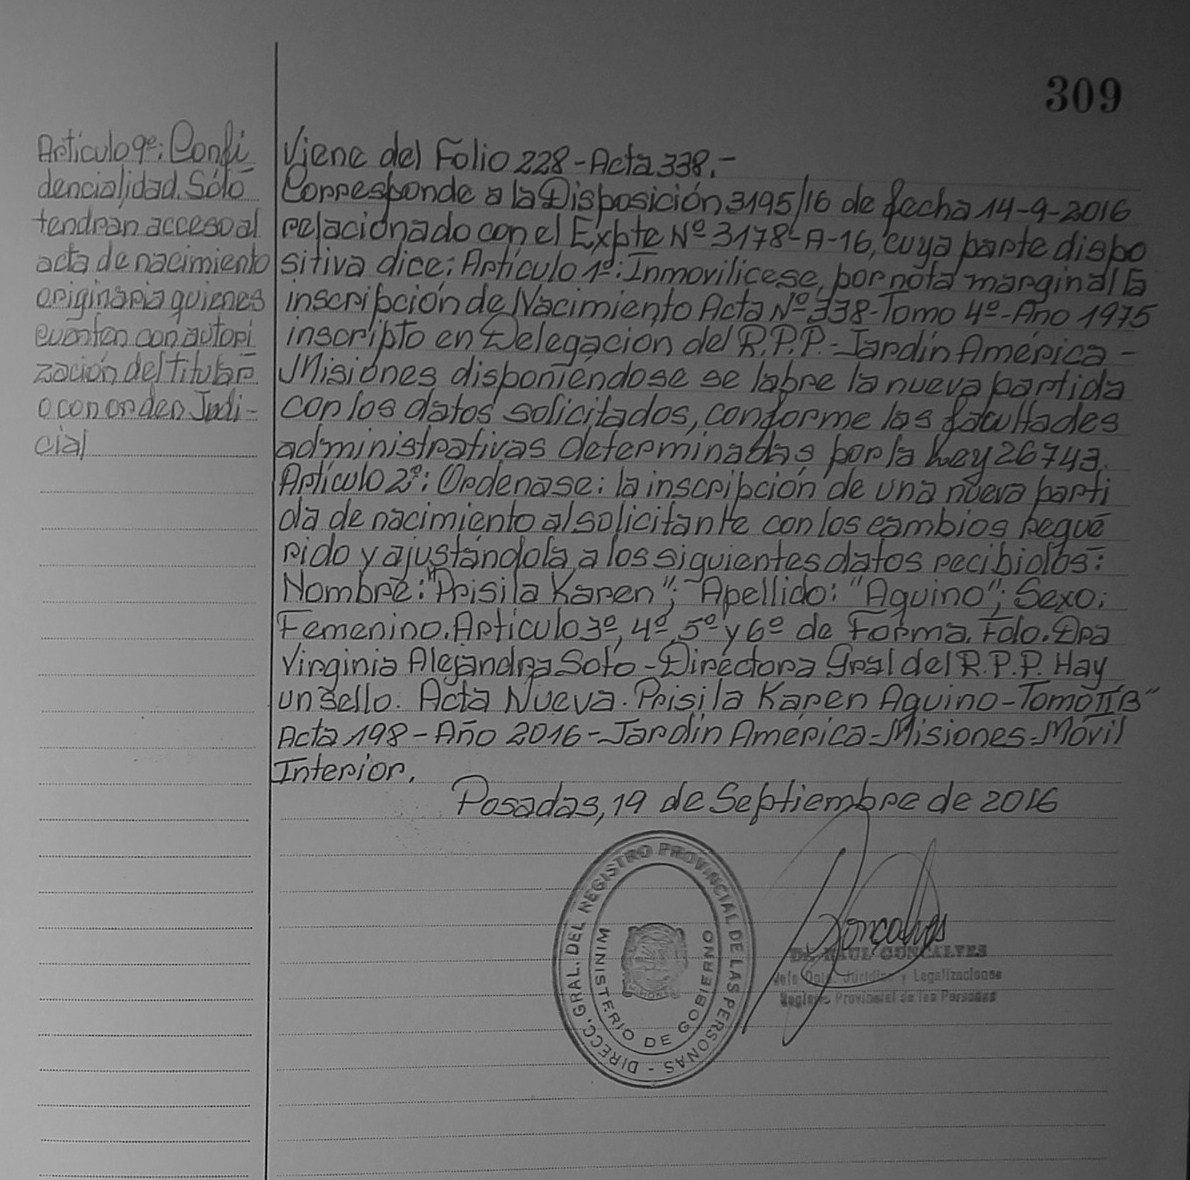 309
Artículo 9º: Confi
dencialidad. Sólo
tendran acceso al
acta de nacimiento
originaria quienes
cuenten con autori
zación del titular
o con orden Judi-
cial
Viene del Folio 228-Acta 338.-
Corresponde a la Disposición 3195/16 de fecha 14-9-2016
relacionado con el Expte Nº 3178-A-16, cuya parte dispo
sitiva dice; Artículo 1º: Inmovilicese, por nota marginal la
inscripción de Nacimiento Acta Nº 338-Tomo 4º-Año 1975
inscripto en Delegación del R.P.P.-Jardín América-
Misiones disponiéndose se labre la nueva partida
con los datos solicitados, conforme las facultades
administrativas determinadas por la Ley 26743.
Artículo 2º: Ordenase: la inscripción de una nueva parti
da de nacimiento al solicitante con los cambios reque
rido y ajustándola a los siguientes datos recibidos:
Nombre: "Prisila Karen"; Apellido: "Aquino"; Sexo:
Femenino. Artículo 3º, 4º, 5º y 6º de Forma. Fdo. Dra
Virginia Alejandra Soto-Directora Gral del R.P.P. Hay
un sello. Acta Nueva. Prisila Karen Aquino-Tomo II B"
Acta 198-Año 2016-Jardín América-Misiones-Móvil
Interior.
Posadas, 19 de Septiembre de 2016
DIRECC. GRAL. DEL REGISTRO PROVINCIAL DE LAS PERSONAS -
MINISTERIO DE GOBIERNO
MISIONES
Gonçalves
Dr. RAUL GONCALVES
Jefe Dpto. Jurídico y Legalizaciones
Registro Provincial de las Personas